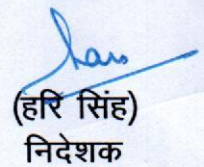 (हरि सिंह)
निदेशक